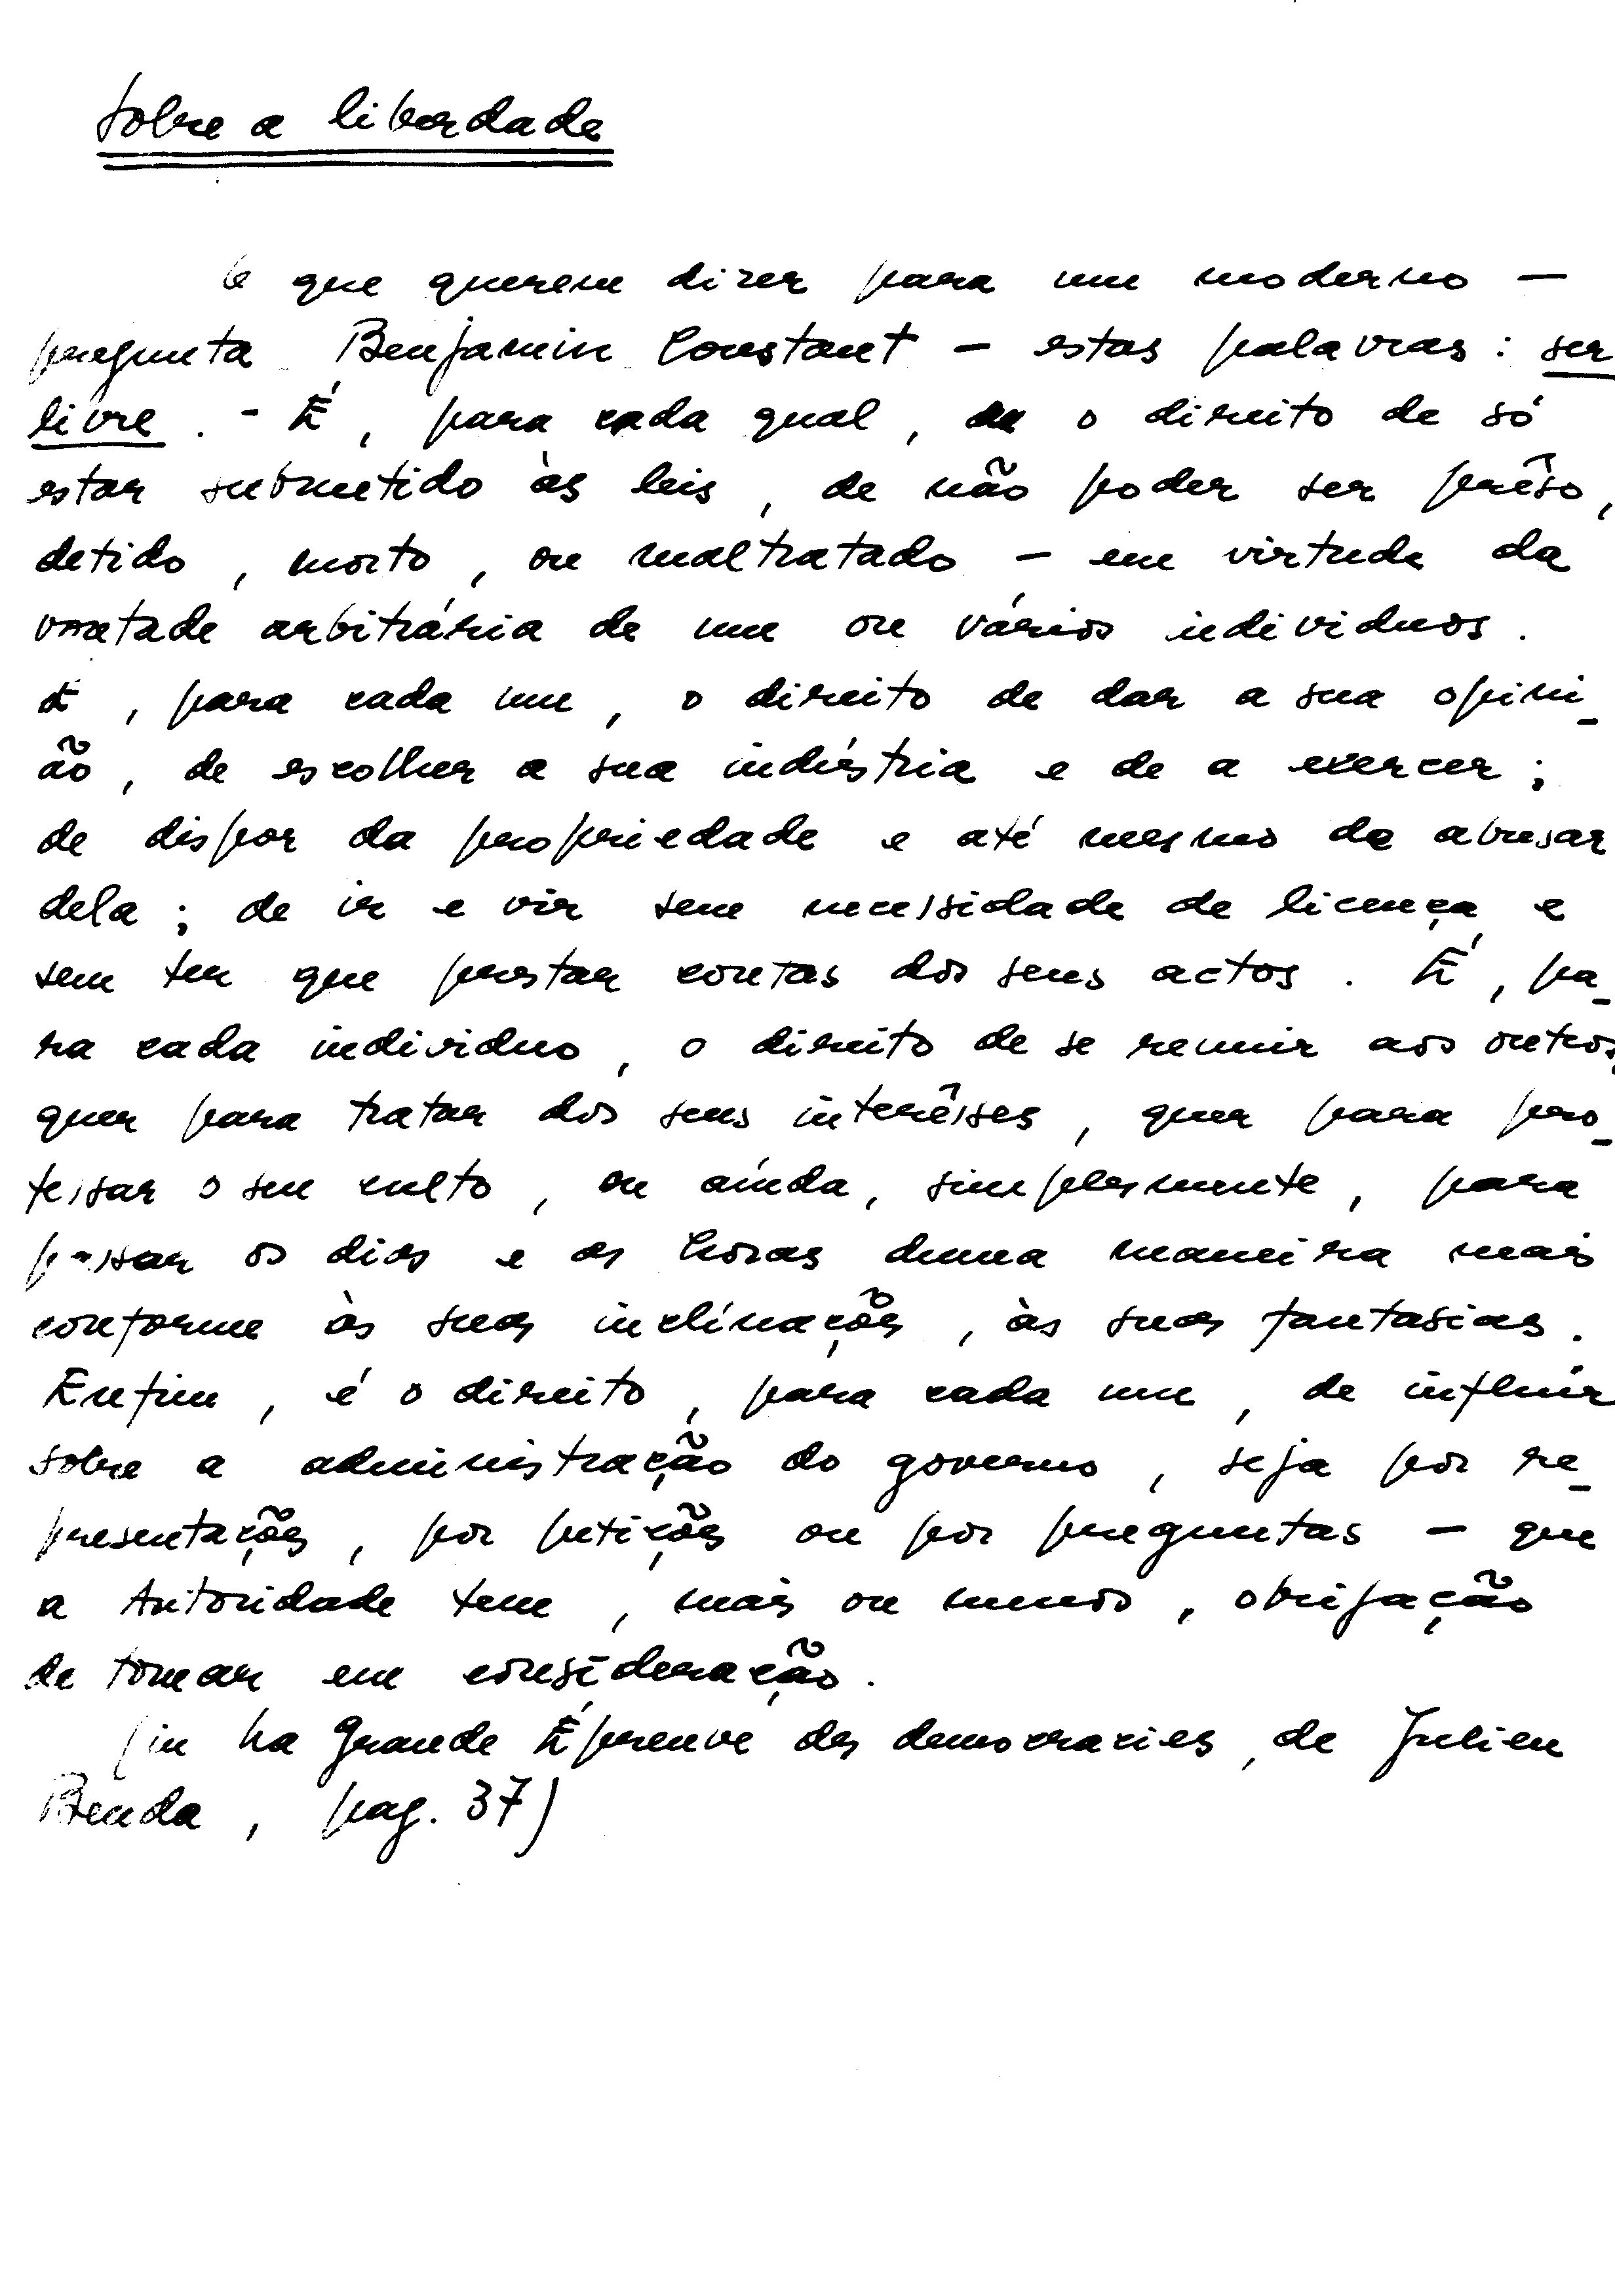 Sobre a liberdade
O que querem dizer para um moderno —
pregunta Benjamin Constant — estas palavras : ser
livre . - É , para cada qual , o direito de só
estar submetido às leis , de não poder ser prêso ,
detido , morto , ou maltratado — em virtude da
vontade arbitrária de um ou vários individuos .
É , para cada um , o direito de dar a sua opini-
ão , de escolher a sua indústria e de a exercer ;
de dispor da propriedade e até mesmo de abusar
dela ; de ir e vir sem necessidade de licença e
sem ter que prestar contas dos seus actos . É , pa-
ra cada individuo , o direito de se reunir aos outros,
quer para tratar dos seus interêsses , quer para pro-
fessar o seu culto , ou aínda , simplesmente , para
passar os dias e as horas duma maneira mais
conforme às suas inclinações , às suas fantasias .
Enfim , é o direito , para cada um , de influir
sobre a administração do governo , seja por re-
presentações , por petições ou por preguntas — que
a Autoridade tem , mais ou menos , obrigação
de tomar em consideração .
(in La Grande Épreuve des democracies , de Julien
Benda , pag. 37)